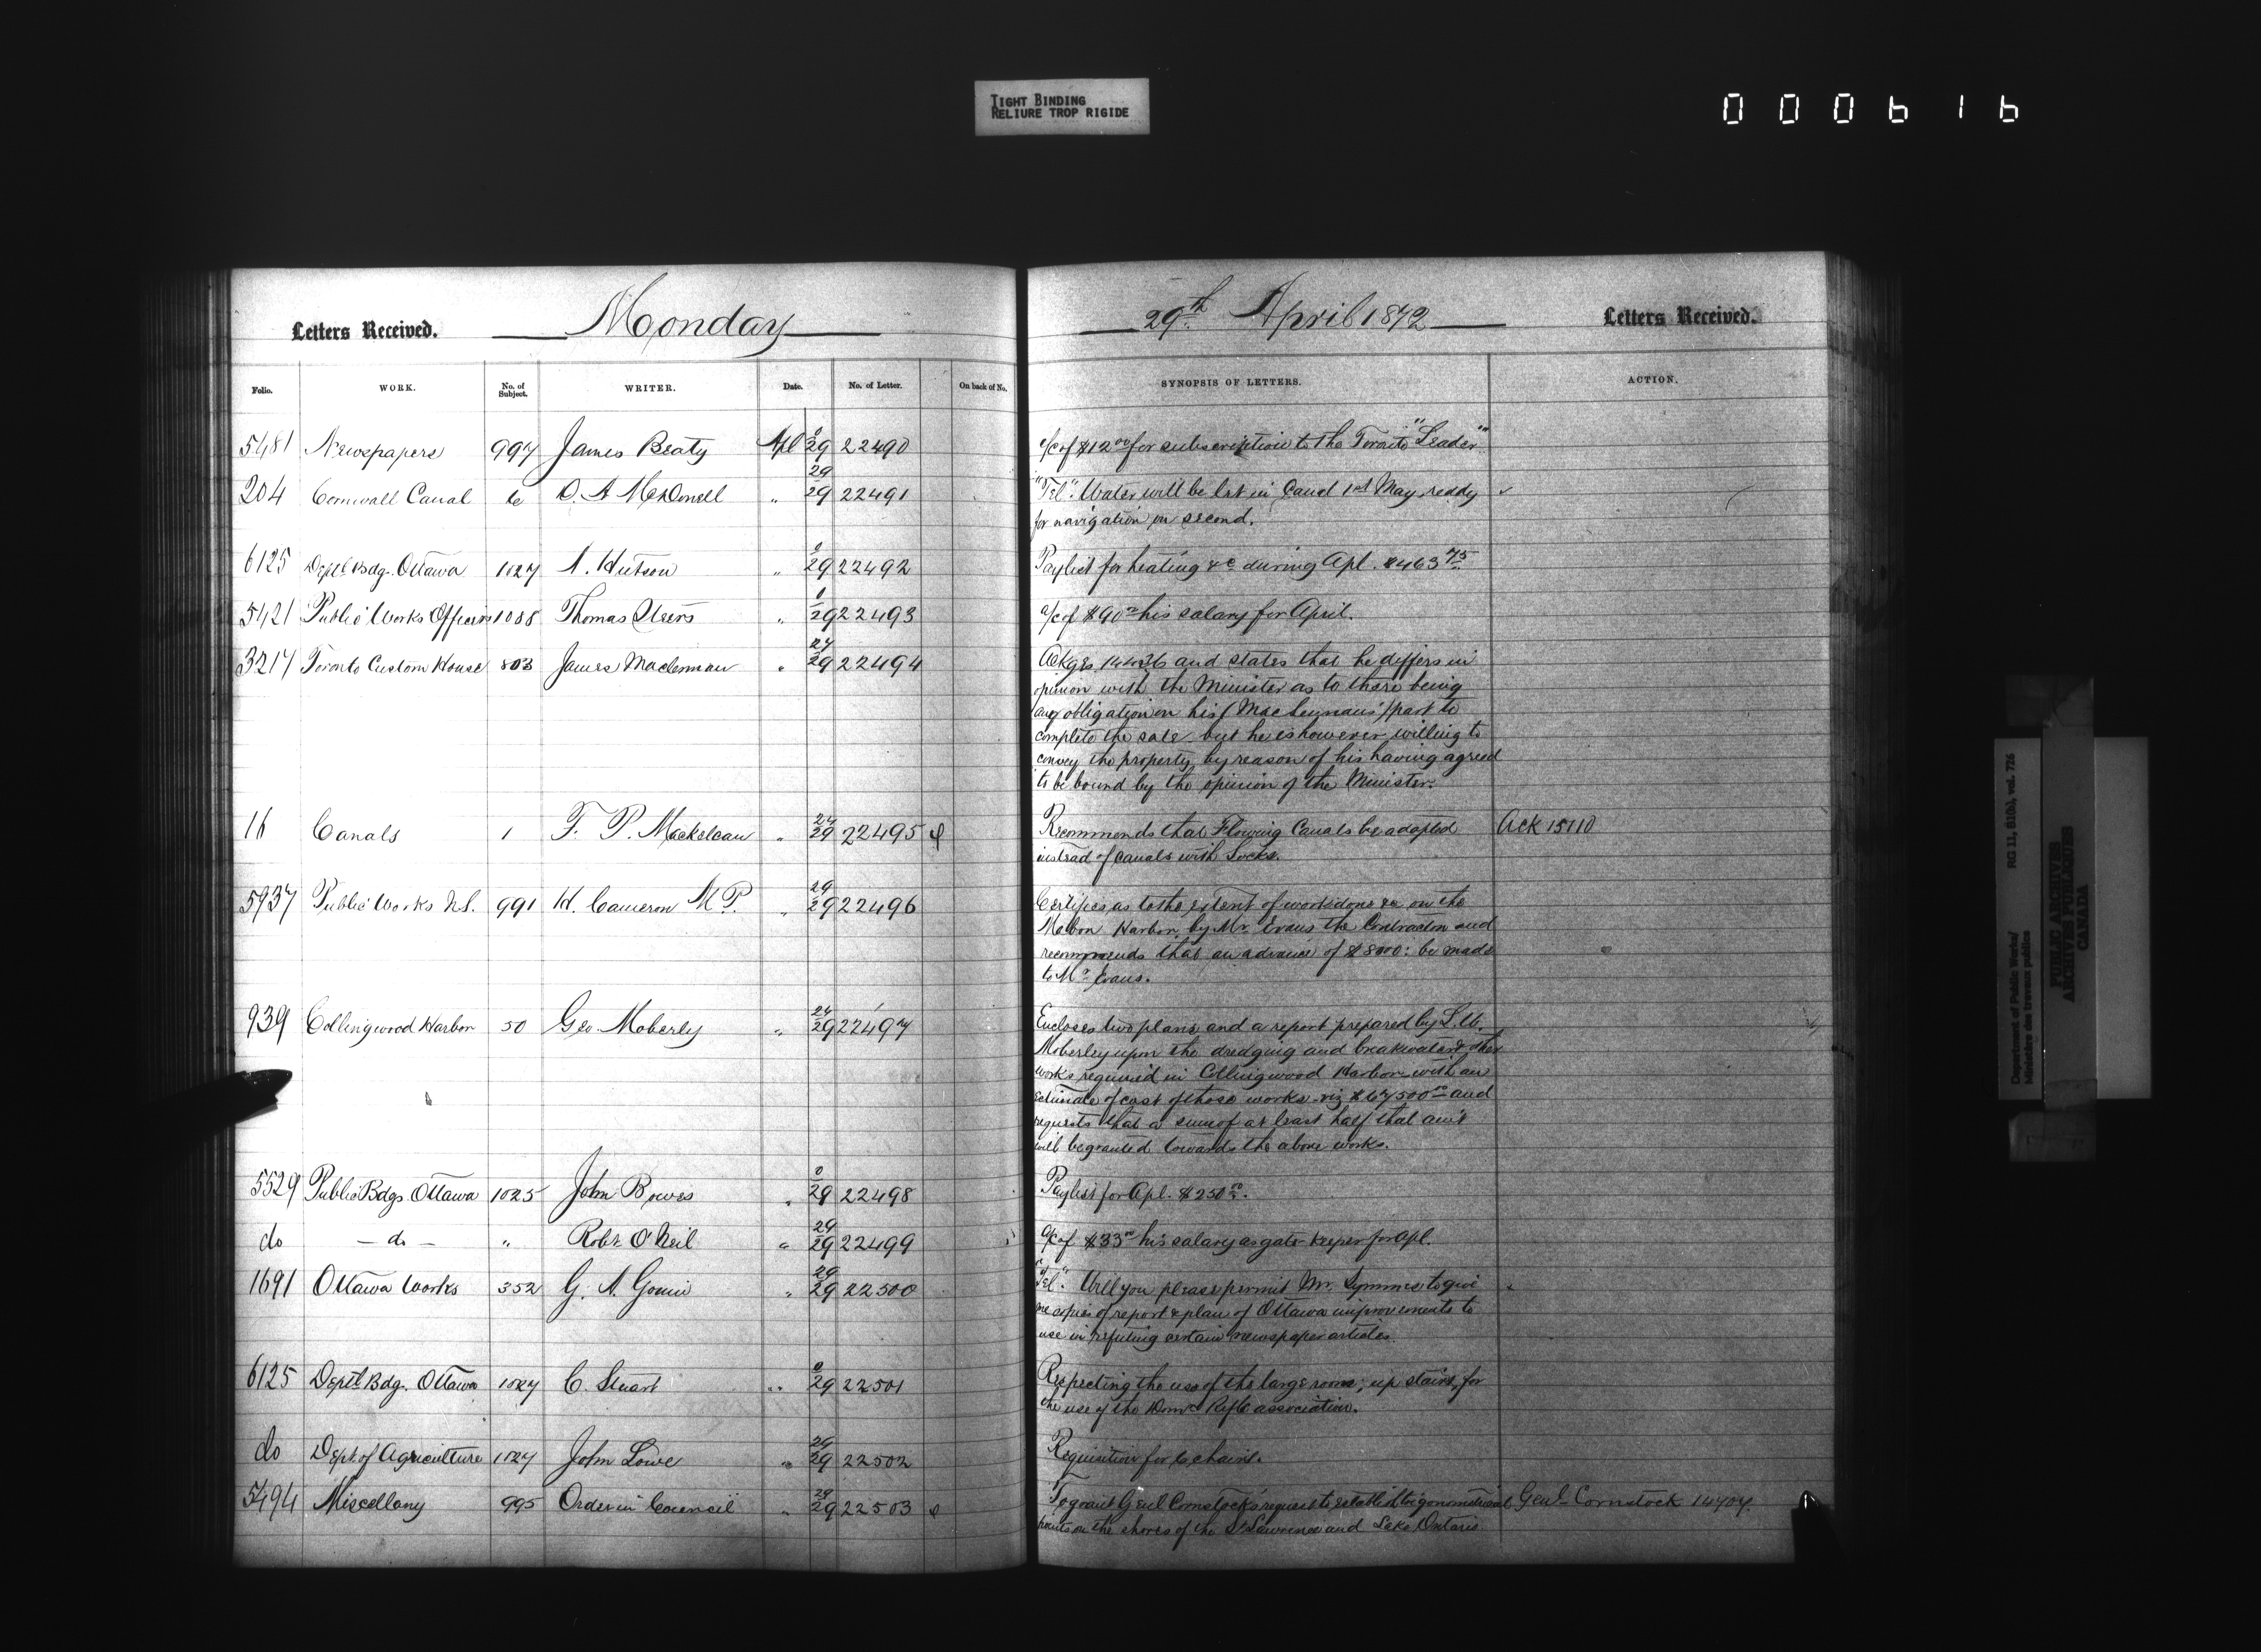 TIGHT BINDING
RELIURE TROP RIGIDE
000616
Letters Received. Monday
Folio. WORK. No. of Subject. WRITER. Date. No. of Letter. On back of No.
5481 Newspapers 997 James Beaty Apl 0/29 22490
204 Cornwall Canal 6 D. A. McDonell " 29/29 22491
6125 Deptl Bdg. Ottawa 1027 A. Hutson " 0/29 22492
5421 Public Works Officers 1088 Thomas " 0/29 22493
3217 Toronto Custom House 803 James Maclennan " 27/29 22494
16 Canals 1 T. P. Mackelcan " 27/29 22495
5937 Public Works N.S. 991 H. Cameron M P. " 29/29 22496
939 Collingwood Harbor 50 Geo. Moberly " 27/29 22497
5529 Public Bdgs. Ottawa 1025 John Bowes " 0/29 22498
do — do — " Robt O'Neil " 29/29 22499
1691 Ottawa Works 352 G. A. " 29/29 22500
6125 Deptl Bdg. Ottawa 1027 C. Stuart " 0/29 22501
do Dept of Agriculture 1027 John Lowe " 29/29 22502
5494 Miscellany 995 Order in Council " 29/29 22503
29th April 1872 Letters Received.
SYNOPSIS OF LETTERS. ACTION.
a/c of $12 00 for subscription to the Toronto "Leader"
"Tel". Water will be let in Canal 1st May, ready
for navigation on second.
Paylist for heating &c during Apl. $463 75
a/c of $90 00 his salary for April.
Ackges and states that he differs in
opinion with the Minister as to there being
any obligation on his (MacLennan's) part to
complete the sale but he is however willing to
convey the property by reason of his having agreed
to be bound by the opinion of the Minister.
Recommends that Flowing Canals be adopted Ack 15110
instead of canals with Locks.
Certifies as to the extent of work done &c on the
Mabou Harbor, by Mr. Evans the Contractor and
recommends that an advance of $8000: be made
to Mr Evans.
Encloses two plans and a report prepared by
Moberley upon the dredging and breakwater & other
works required in Collingwood Harbor with an
estimate of cost of those works viz $67500 00 and
requests that a sum of at least half that am't
will be granted towards the above works.
Paylist for Apl. $250 00.
a/c of $33 00 his salary as gate keeper for Apl.
"Tel". Will you please permit Mr. Symmes to give
me copies of report & plan of Ottawa improvements to
use in refuting certain newspaper articles.
Respecting the use of the large room, up stairs, for
the use of the Domn Rifle association.
Requisition for 6 chairs.
To grant Genl Comstock's request to establish trigonometrical Genl Comstock 14704.
points on the shores of the St Lawrence and Lake Ontario.
Department of Public Works/ RG 11, B1(b), vol. 726
Ministère des travaux publics
PUBLIC ARCHIVES
ARCHIVES PUBLIQUES
CANADA